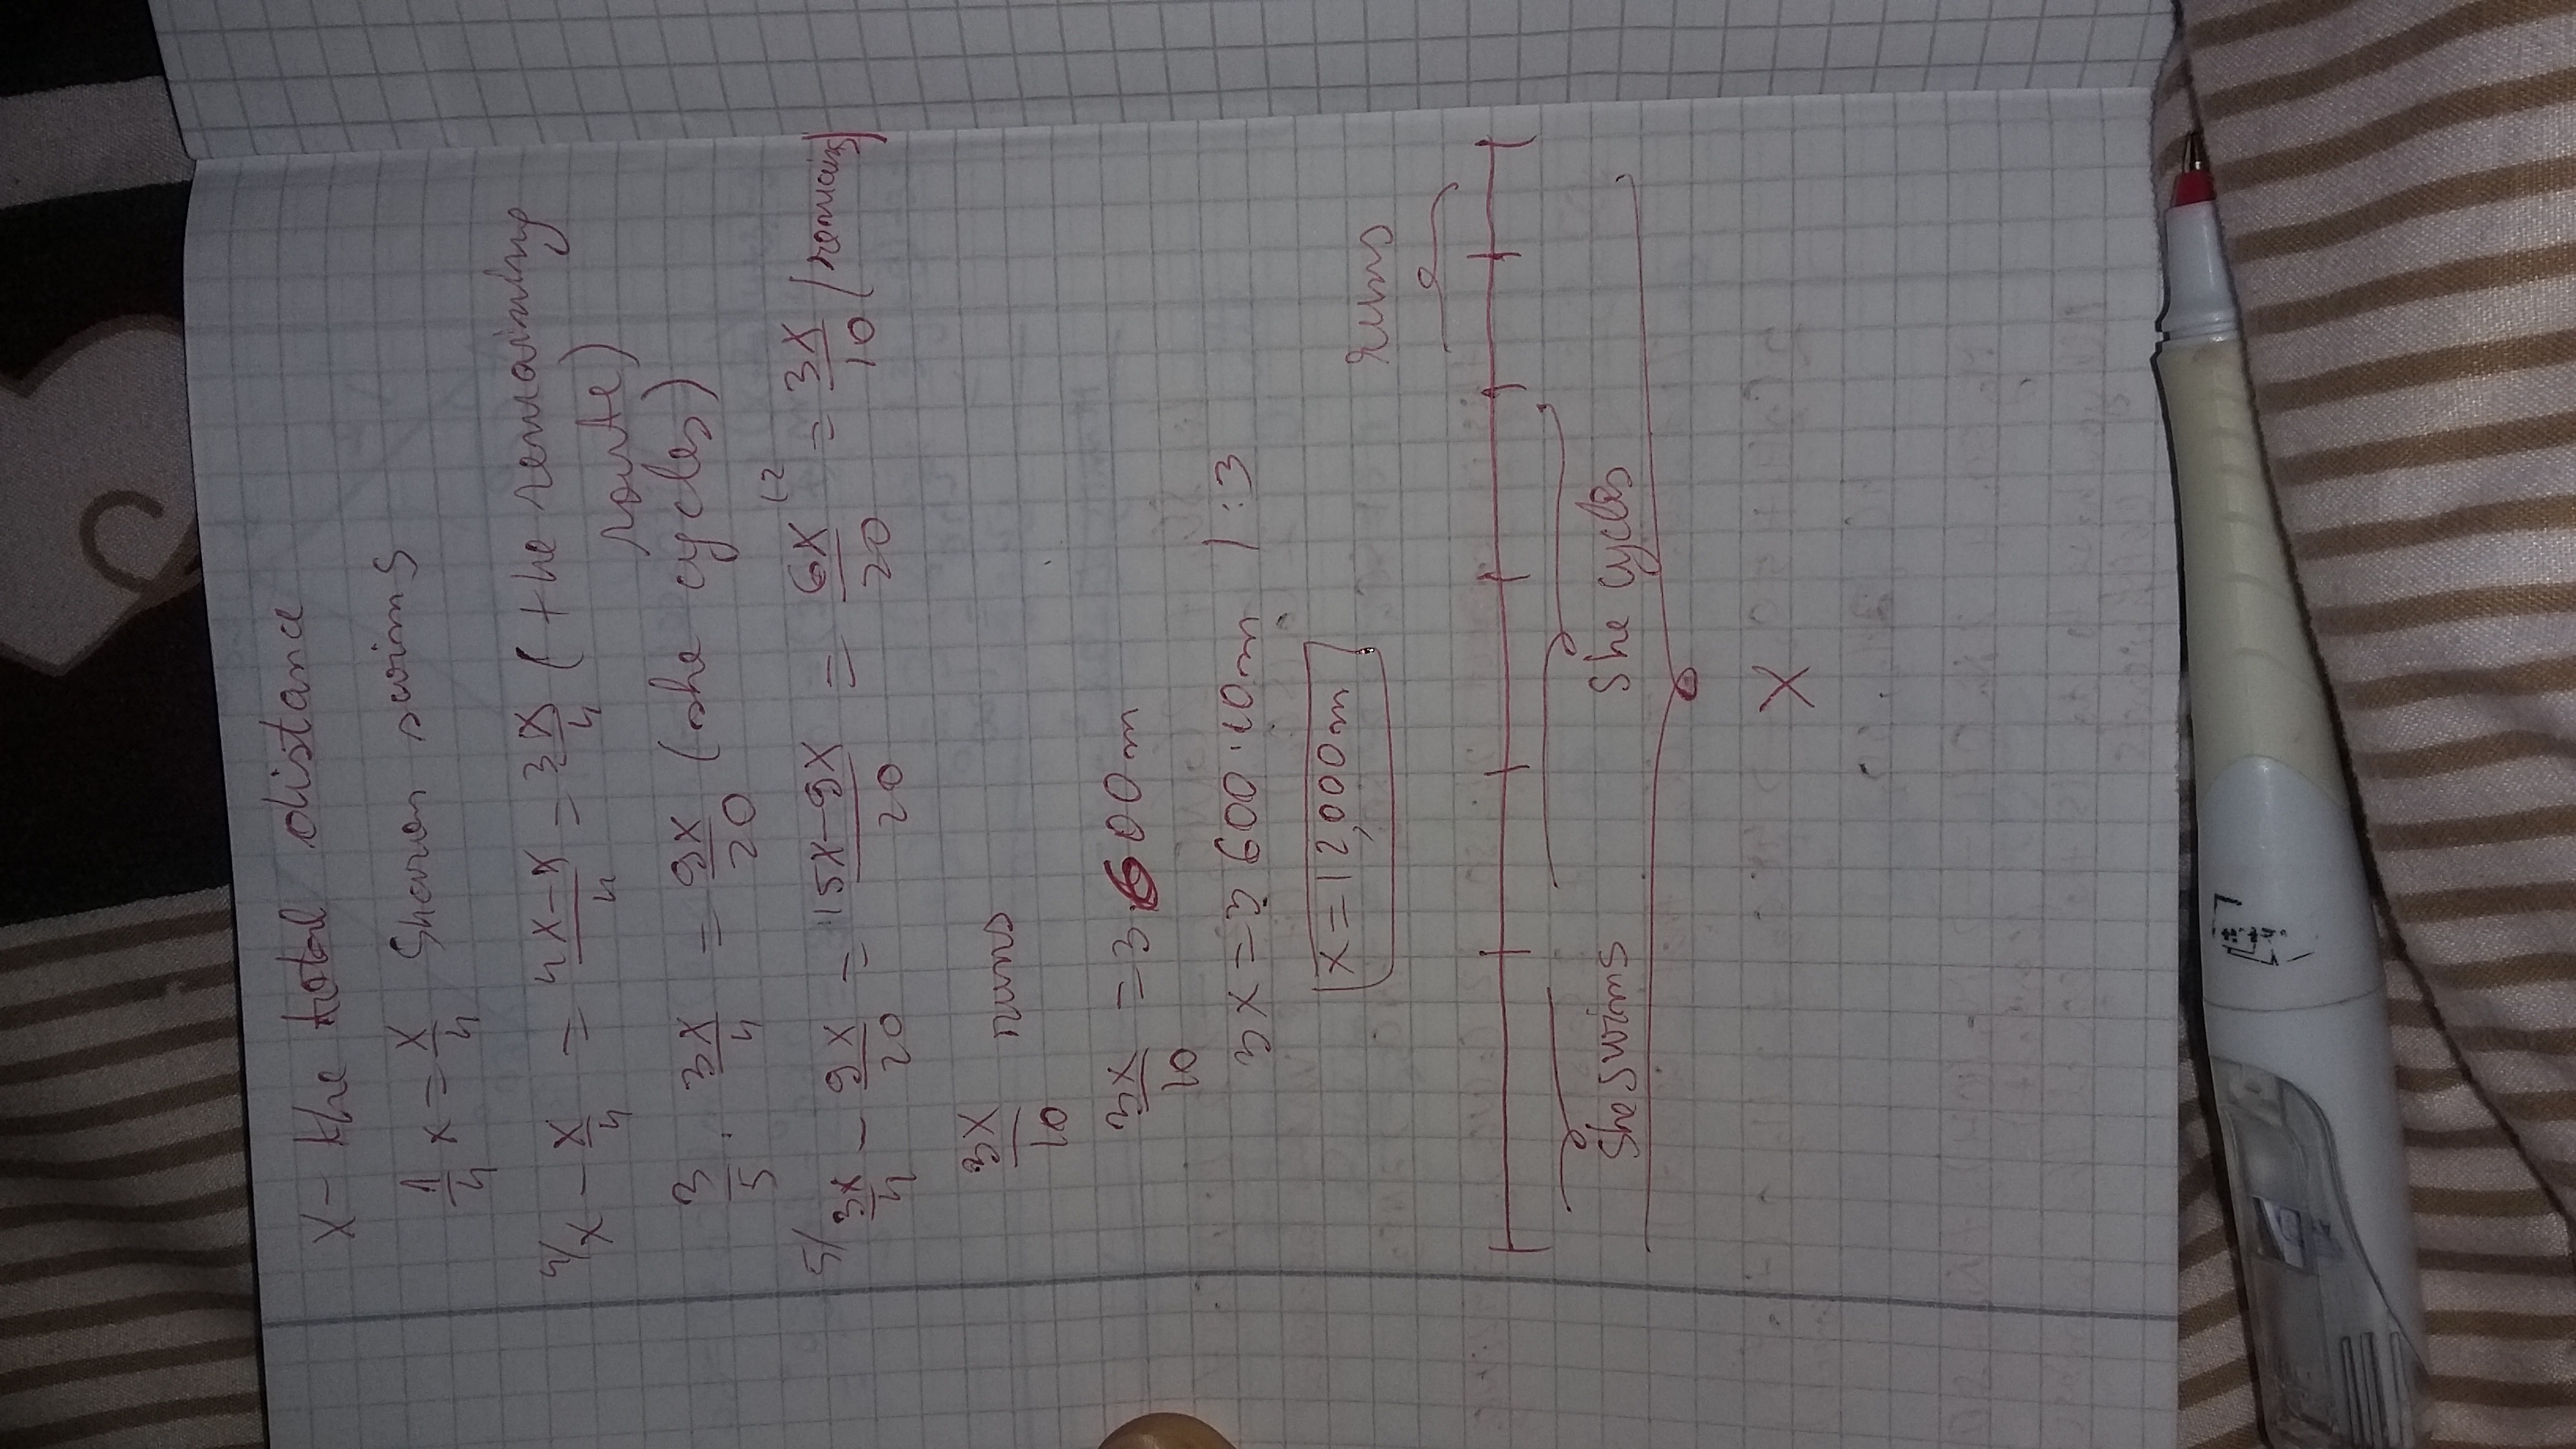 x - the total distance
1/4 x = x/4 Sharon swims
4/ x - x/4 = 4x-x/4 = 3x/4 (the remaining
route)
3/5 · 3x/4 = 9x/20 (she cycles)
5/ 3x/4 - 9x/20 = 15x-9x/20 = 6x/20 (2 = 3x/10 (remaining)
3x/10 runs
3x/10 = 3600m
3x = 3600·10m /:3
x = 12,000m
runs
She swims She cycles
x